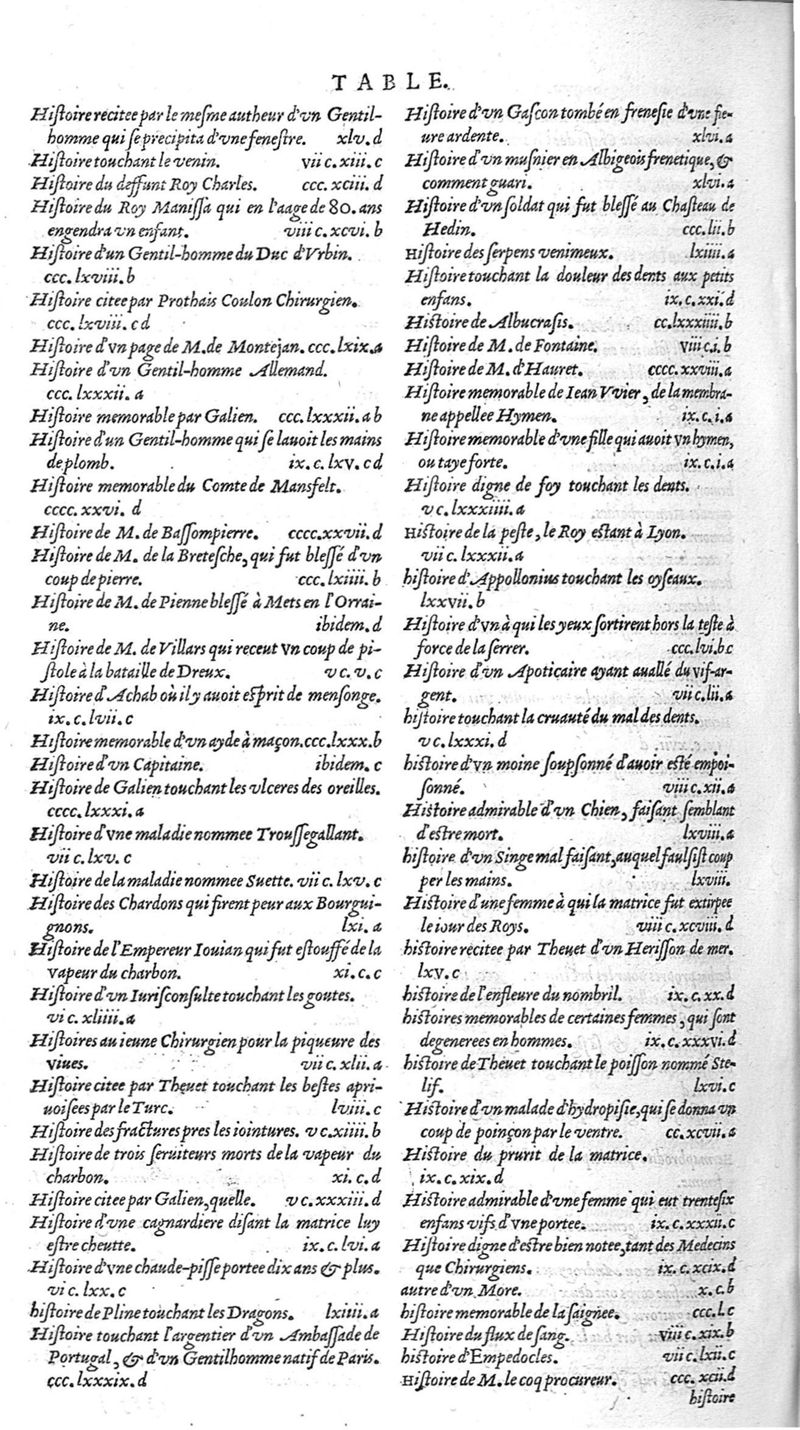 TABLE.
Hiſtoire recitee par le meſme autheur d'vn Gentil-
homme qui ſe precipita d'vne feneſtre. xlv.d
Hiſtoire touchant le venin. vii c.xiii.c
Hiſtoire du deffunt Roy Charles. ccc.xciii.d
Hiſtoire du Roy Maniſſa qui en l'aage de 80.ans
engendra vn enfant. viii c.xcvi.b
Hiſtoire d'un Gentil-homme du Duc d'Vrbin.
ccc.lxviii.b
Hiſtoire citee par Prothais Coulon Chirurgien.
ccc.lxviii.cd
Hiſtoire d'vn page de M.de Montejan. ccc.lxix.a
Hiſtoire d'vn Gentil-homme Allemand.
ccc.lxxxii.a
Hiſtoire memorable par Galien. ccc.lxxxii.ab
Hiſtoire d'un Gentil-homme qui ſe lauoit les mains
de plomb. ix.c.lxv.cd
Hiſtoire memorable du Comte de Mansfelt.
cccc.xxvi.d
Hiſtoire de M.de Baſſompierre. cccc.xxvii.d
Hiſtoire de M. de la Breteſche, qui fut bleſſé d'vn
coup de pierre. ccc.liiii.b
Hiſtoire de M.de Pienne bleſſé à Mets en l'Orrai-
ne. ibidem.d
Hiſtoire de M. de Villars qui receut vn coup de pi-
ſtole à la bataille de Dreux. v c.v.c
Hiſtoire d'Achab où il y auoit eſprit de menſonge.
ix.c.lvii.c
Hiſtoire memorable d'vn ayde à maçon.ccc.lxxx.b
Hiſtoire d'vn Capitaine. ibidem.c
Hiſtoire de Galien touchant les vlceres des oreilles.
cccc.lxxxi.a
Hiſtoire d'vne maladie nommee Trouſſegallant.
vii c.lxv.c
Hiſtoire de la maladie nommee Suette. vii c.lxv.c
Hiſtoire des Chardons qui firent peur aux Bourgui-
gnons. lxi.a
Hiſtoire de l'Empereur Iouian qui fut eſtouffé de la
vapeur du charbon. xi.c.c
Hiſtoire d'vn Iuriſconſulte touchant les goutes.
vi c.xliiii.a
Hiſtoires au ieune Chirurgien pour la piqueure des
viues. vii c.xlii.a
Hiſtoire citee par Theuet touchant les beſtes apri-
uoiſees par le Turc. lviii.c
Hiſtoire des fractures pres les iointures. v c.xiiii.b
Hiſtoire de trois ſeruiteurs morts de la vapeur du
charbon. xi.c.d
Hiſtoire citee par Galien,quelle. v c.xxxiii.d
Hiſtoire d'vne cagnardiere diſant la matrice luy
eſtre cheutte. ix.c.lvi.a
Hiſtoire d'vne chaude-piſſe portee dix ans & plus.
vi c.lxx.c
hiſtoire de Pline touchant les Dragons. lxiiii.a
Hiſtoire touchant l'argentier d'vn Ambaſſade de
Portugal, & d'vn Gentilhomme natif de Paris.
ccc.lxxxix.d
Hiſtoire d'vn Gaſcon tombé en freneſie d'vne fie-
ure ardente. xlvi.a
Hiſtoire d'vn muſnier en Albigeois frenetique, &
comment guari. xlvi.a
Hiſtoire d'vn ſoldat qui fut bleſſé au Chaſteau de
Hedin. ccc.lii.b
Hiſtoire des ſerpens venimeux. lxiiii.a
Hiſtoire touchant la douleur des dents aux petits
enfans. ix.c.xxi.d
Hiſtoire de Albucraſis. cc.lxxxiiii.b
Hiſtoire de M. de Fontaine. viii c.i.b
Hiſtoire de M. d'Hauret. cccc.xxviii.a
Hiſtoire memorable de Iean Vvier, de la membra-
ne appellee Hymen. ix.c.i.a
Hiſtoire memorable d'vne fille qui auoit vn hymen,
ou taye forte. ix.c.i.a
Hiſtoire digne de foy touchant les dents.
v c.lxxxiiii.a
Hiſtoire de la peſte, le Roy eſtant à Lyon.
vii c.lxxxii.a
hiſtoire d'Appollonius touchant les oyſeaux.
lxxvii.b
Hiſtoire d'vn à qui les yeux ſortirent hors la teſte à
force de la ſerrer. ccc.lvi.bc
Hiſtoire d'vn Apoticaire ayant auallé du vif-ar-
gent. vii c.lii.a
hiſtoire touchant la cruauté du mal des dents.
v c.lxxxi.d
hiſtoire d'vn moine ſoupſonné d'auoir eſté empoi-
ſonné. viii c.xii.a
Hiſtoire admirable d'vn Chien, faiſant ſemblant
d'eſtre mort. lxviii.a
hiſtoire d'vn Singe mal faiſant, auquel faulſiſt coup
per les mains. lxviii.
Hiſtoire d'vne femme à qui la matrice fut extirpee
le iour des Roys. viii c.xcviii.d
hiſtoire recitee par Theuet d'vn Heriſſon de mer.
lxv.c
hiſtoire de l'enfleure du nombril. ix.c.xx.d
hiſtoires memorables de certaines femmes, qui ſont
degenerees en hommes. ix.c.xxxvi.d
hiſtoire de Theuet touchant le poiſſon nommé Ste-
lif. lxvi.c
Hiſtoire d'vn malade d'hydropiſie, qui ſe donna vn
coup de poinçon par le ventre. cc.xcvii.a
Hiſtoire du prurit de la matrice.
ix.c.xix.d
Hiſtoire admirable d'vne femme qui eut trenteſix
enfans vifs d'vne portee. ix.c.xxxii.c
Hiſtoire digne d'eſtre bien notee, tant des Medecins
que Chirurgiens. ix.c.xcix.d
autre d'vn More. x.c.b
hiſtoire memorable de la ſaignee. ccc.l.c
Hiſtoire du flux de ſang. viii c.xix.b
hiſtoire d'Empedocles. vii c.lxii.c
Hiſtoire de M. le coq procureur. ccc.xcii.d
hiſtoire